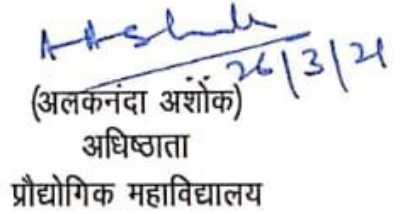 26/3/21
(अलकनंदा अशोक)
अधिष्ठाता
प्रौद्योगिक महाविद्यालय